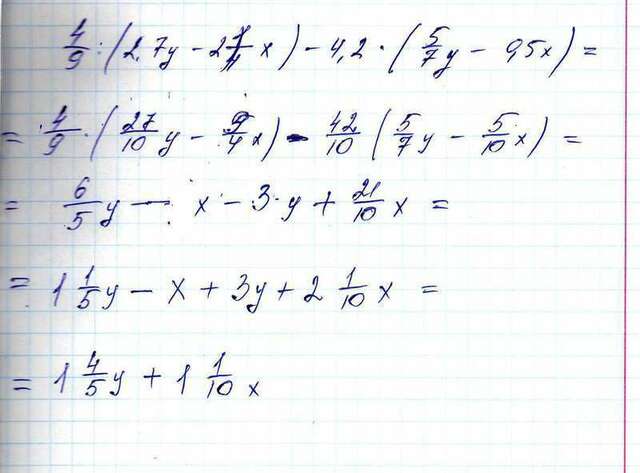 4/9 : (2,7y - 2 1/4 x) - 4,2 · (5/7 y - 0,5x) =
= 4/9 · (27/10 y - 9/4 x) - 42/10 (5/7 y - 5/10 x) =
= 6/5 y - x - 3 · y + 21/10 x =
= 1 1/5 y - x + 3y + 2 1/10 x =
= 1 4/5 y + 1 1/10 x